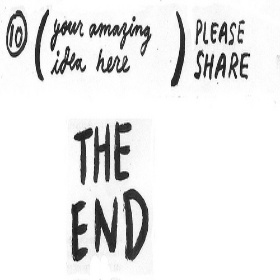 10 (your amazing idea here) PLEASE SHARE
THE
END